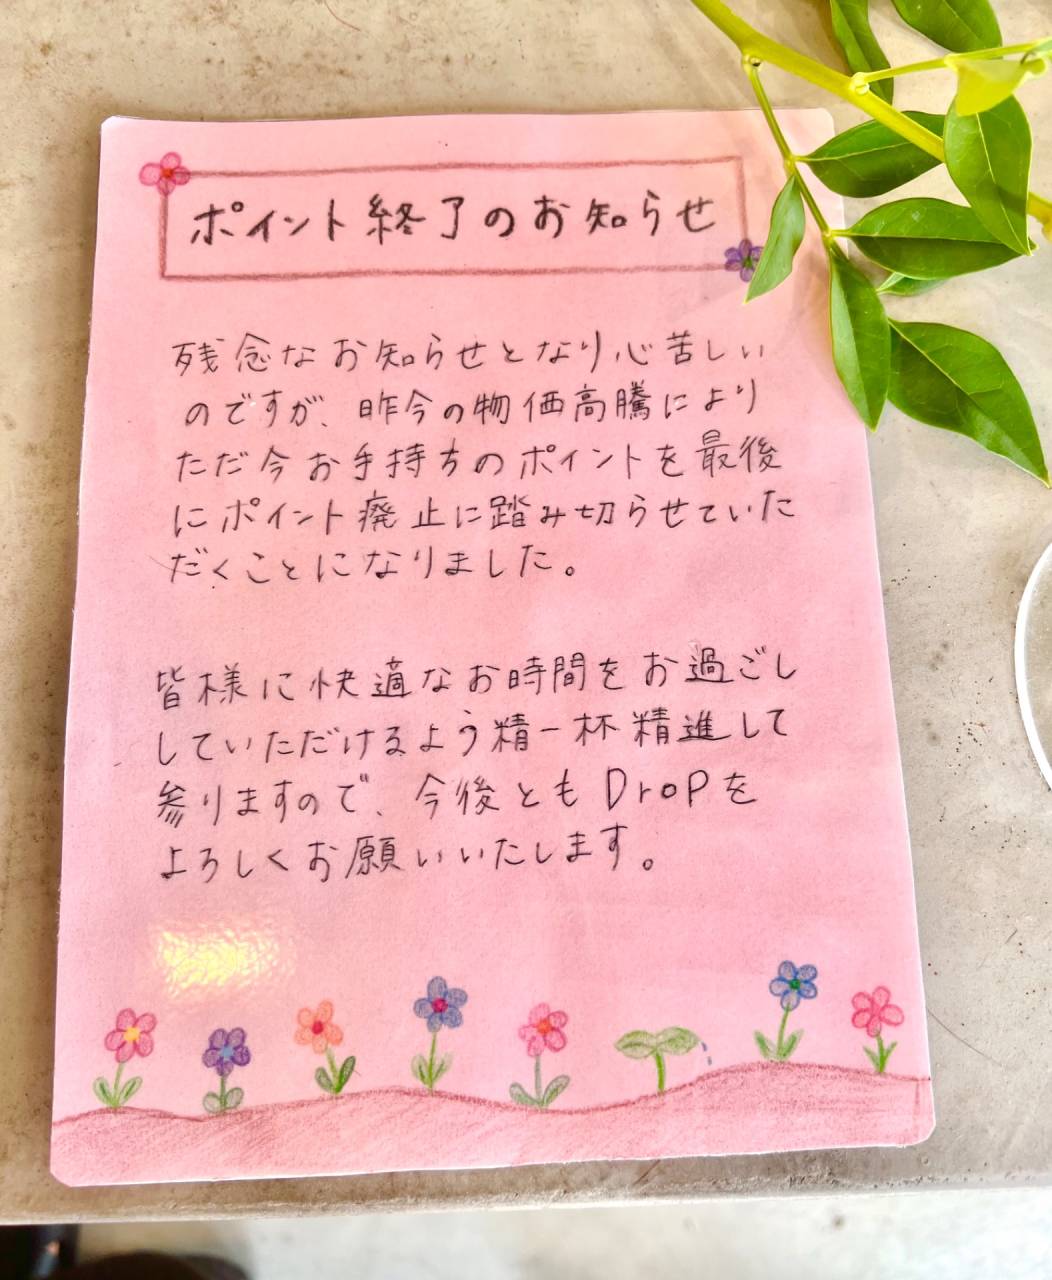 ポイント終了のお知らせ
残念なお知らせとなり心苦しい
のですが、昨今の物価高騰により
ただ今お手持ちのポイントを最後
にポイント廃止に踏み切らせていた
だくことになりました。
皆様に快適なお時間をお過ごし
していただけるよう精一杯精進して
参りますので、今後ともDropを
よろしくお願いいたします。